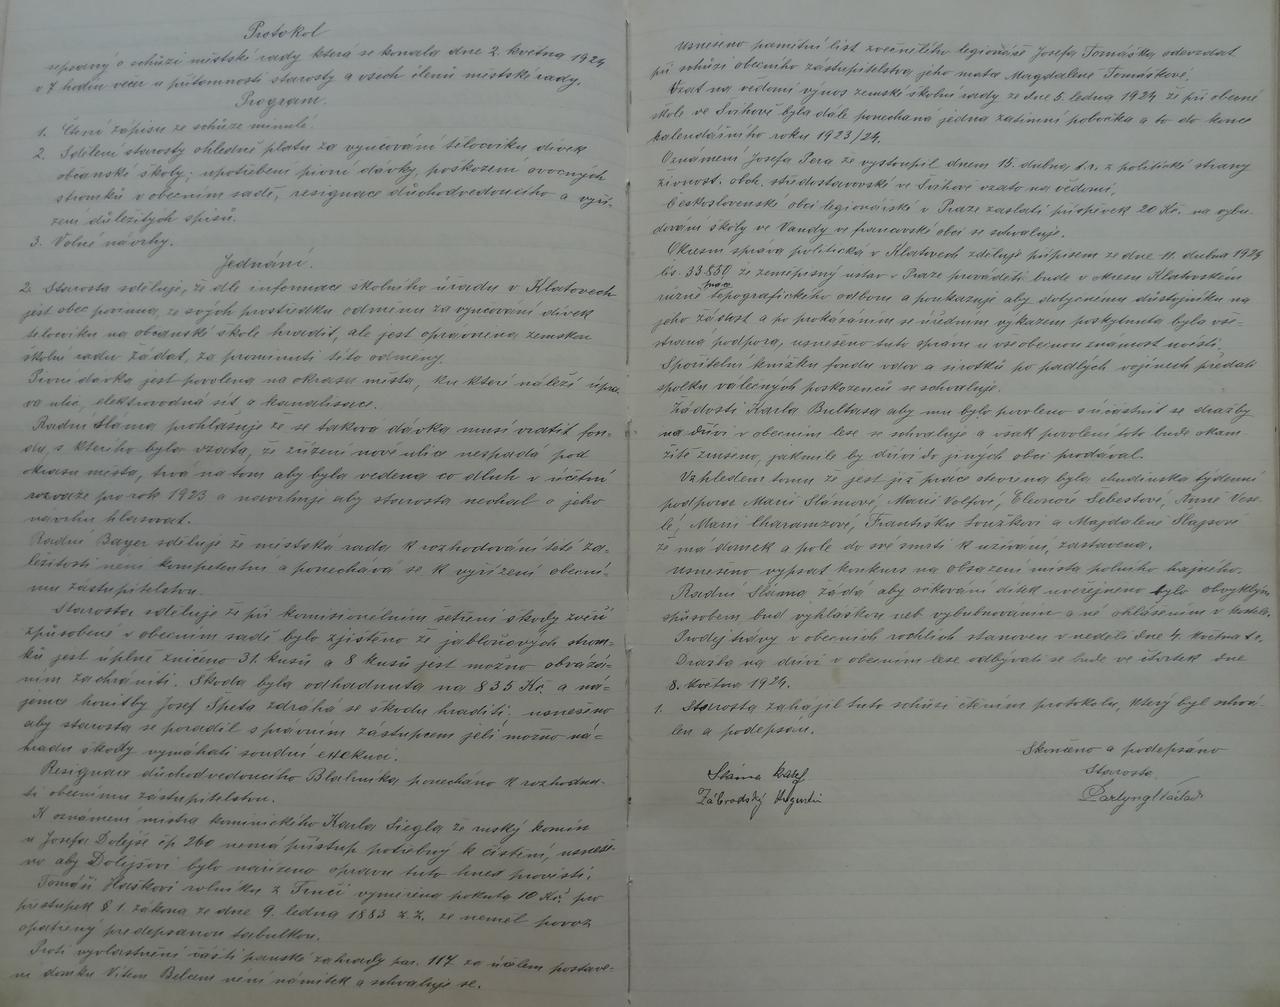 Protokol
sepsaný o schůzi městské rady která se konala dne 2. května 1924
o 7 hodin večer u přítomnosti starosty a všech členů městské rady.
Program.
1. Čtení zápisu ze schůze minulé.
2. Sdělení starosty ohledně platu za vyučování tělocviku dívek
občanské školy; upotřebení pivní dávky, poškození ovocných
stromků v obecním sadě, resignace důchodvedoucího a vyří-
zení důležitých spisů.
3. Volné návrhy.
Jednání.
2. Starosta sděluje, že dle informace školního úřadu v Klatovech
jest obec povinna, ze svých prostředků odměnu za vyučování dívek
tělocviku na občanské škole hradit, ale jest oprávněna zemskou
školní radu žádat, za prominutí této odměny.
Pivní dávka jest povolena na okrasu města, ku které náleží úpra-
va ulic, elektrovodná síť a kanalisace.
Radní Sláma prohlašuje že se taková dávka musí vrátit fon-
du, s kterého byla vzata, že zřízení nové ulice nespadá pod
okrasu města, trvá na tom aby byla vedena co dluh v účetní
rozvaze pro rok 1923 a navrhuje aby starosta nechal o jeho
návrhu hlasovat.
Radní Bayer sděluje že městská rada k rozhodování této zá-
ležitosti není kompetentní a ponechává se k vyřízení obecní-
mu zastupitelstvu.
Starosta sděluje že při komisionelním šetření škody zvěří
způsobené v obecním sadě bylo zjištěno že jabloňových strom-
ků jest úplně zničeno 31 kusů a 8 kusů jest možno obvázá-
ním zachrániti. Škoda byla odhadnuta na 835 Kč. a ná-
jemce honitby Josef Špeta zdráhá se škodu hraditi; usneseno
aby starosta se poradil s právním zástupcem jeli možno ná-
hradu škody vymáhati soudní exekucí.
Resignace důchodvedoucího Blahníka ponecháno k rozhodnu-
tí obecnímu zastupitelstvu.
K oznámení mistra kominického Karla Siegla že ruský komín
u Josefa Dolejše čp 260 nemá přístup potřebný k čistění, usnese-
no aby Dolejšovi bylo nařízeno opravu tuto hned provésti.
Tomáši Haškovi rolníku z Trnčí vyměřena pokuta 10 Kč. pro
přestupek § 1. zákona ze dne 9. ledna 1883 z. z. že neměl povoz
opatřený předepsanou tabulkou.
Proti vyvlastnění části panské zahrady par. 117 za účelem postave-
ní domku Vítem Belcem není námitek a schvaluje se.
Usneseno pamětní list zvěčnělého legionáře Josefa Tomáška odevzdat
při schůzi obecního zastupitelstva jeho matce Magdaleně Tomáškové.
Vzat na vědomí výnos zemské školní rady ze dne 5. ledna 1924 že při obecné
škole ve Švihově byla dále ponechána jedna zatímní pobočka a to do konce
kalendářního roku 1923/24.
Oznámení Josefa Pera že vystoupil dnem 15. dubna t.r. z politické strany
živnost. obch. středostavovské ve Švihově vzato na vědomí.
Československé obci legionářské v Praze zaslati příspěvek 20 Kč. na vybu-
dování školy ve Vandy ve francouské obci se schvaluje.
Okresní správa politická v Klatovech sděluje přípisem ze dne 11. dubna 1924
čís. 33.850 že zeměpisný ústav v Praze prováděti bude v okresu Klatovském
různé práce topografického odboru a poukazuje aby dotyčnému důstojníku na
jeho žádost a po prokázáním se úředním výkazem poskytnuta byla vše-
straná podpora, usneseno tuto správu u všeobecnou známost uvésti.
Spořitelní knížku fondu vdov a sirotků po padlých vojínech předati
spolku válečných poškozenců se schvaluje.
Žádosti Karla Bultasa aby mu bylo povoleno súčastnit se dražby
na dříví v obecním lese se schvaluje a však povolení toto bude okam
žitě zrušeno, jakmile by dříví do jiných obcí prodával.
Vzhledem tomu že jest již práce otevřena byla chudinská týdenní
podpora Marii Slámové, Marii Volfové, Eleonoře Šebestové, Anně Vese-
lé, Marii Charamzové, Františku Loužkovi a Majdaleně Šlajsové
že má domek a pole do své smrti k užívání, zastavena.
Usneseno vypsat konkurs na obsazení místa polního hajného.
Radní Sláma žádá aby očkování dítek uveřejněno bylo obvyklým
způsobem buď vyhláškou neb vybubnováním a né ohlášením v kostele.
Prodej trávy v obecních rochlích stanoven v neděli dne 4. května t.r.
Dražba na dříví v obecním lese odbývati se bude ve čtvrtek dne
8. května 1924.
1. Starosta zahájil tuto schůzi čtením protokolu, který byl schvá-
len a podepsán.
Skončeno a podepsáno
Starosta
Sláma Josef
Zábrodský Augustin